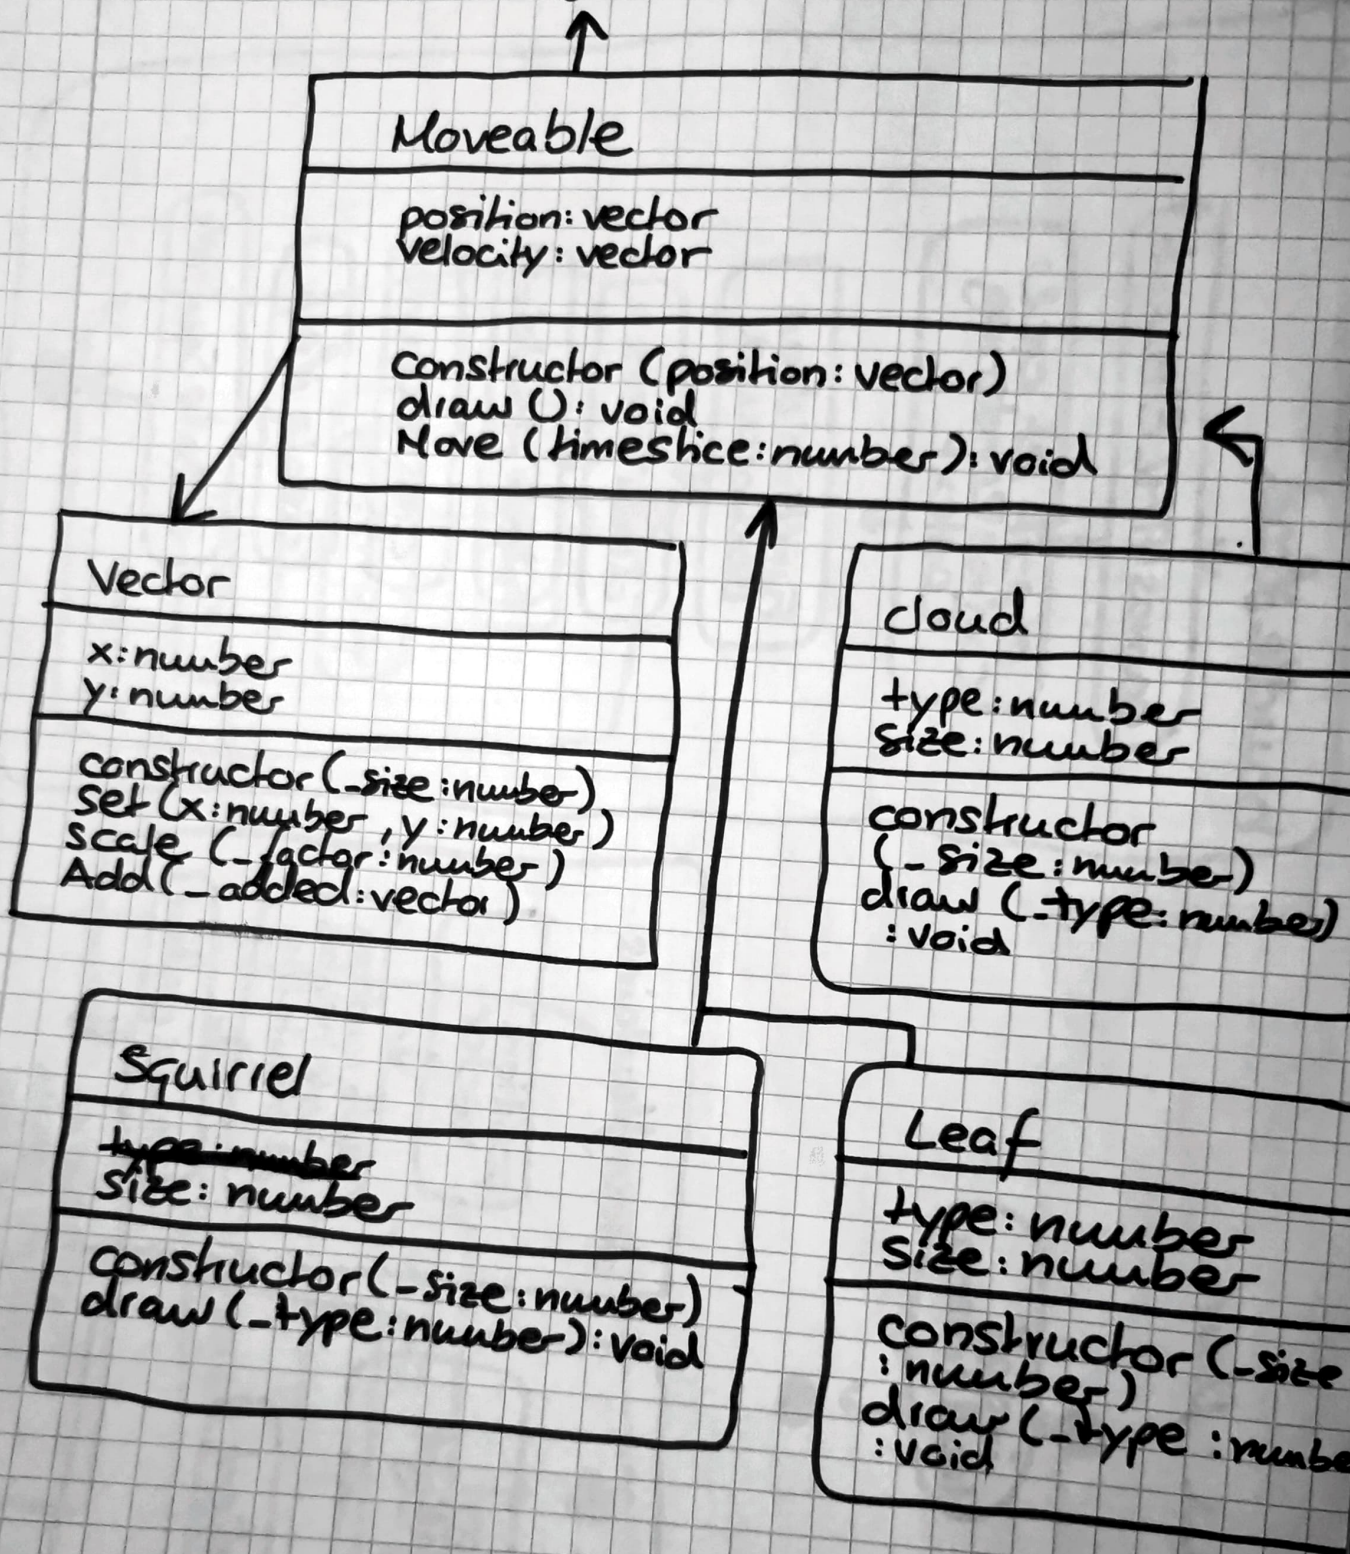 Moveable
position: vector
velocity: vector
constructor (position: vector)
draw (): void
Move (timeslice: number): void
Vector
x: number
y: number
constructor (_size: number)
set (x: number, y: number)
scale (_factor: number)
Add (_added: vector)
cloud
type: number
size: number
constructor
(_size: number)
draw (_type: number)
: void
Squirrel
type: number
size: number
constructor (_size: number)
draw (_type: number): void
Leaf
type: number
size: number
constructor (_size
: number)
draw (_type : numbe
: void